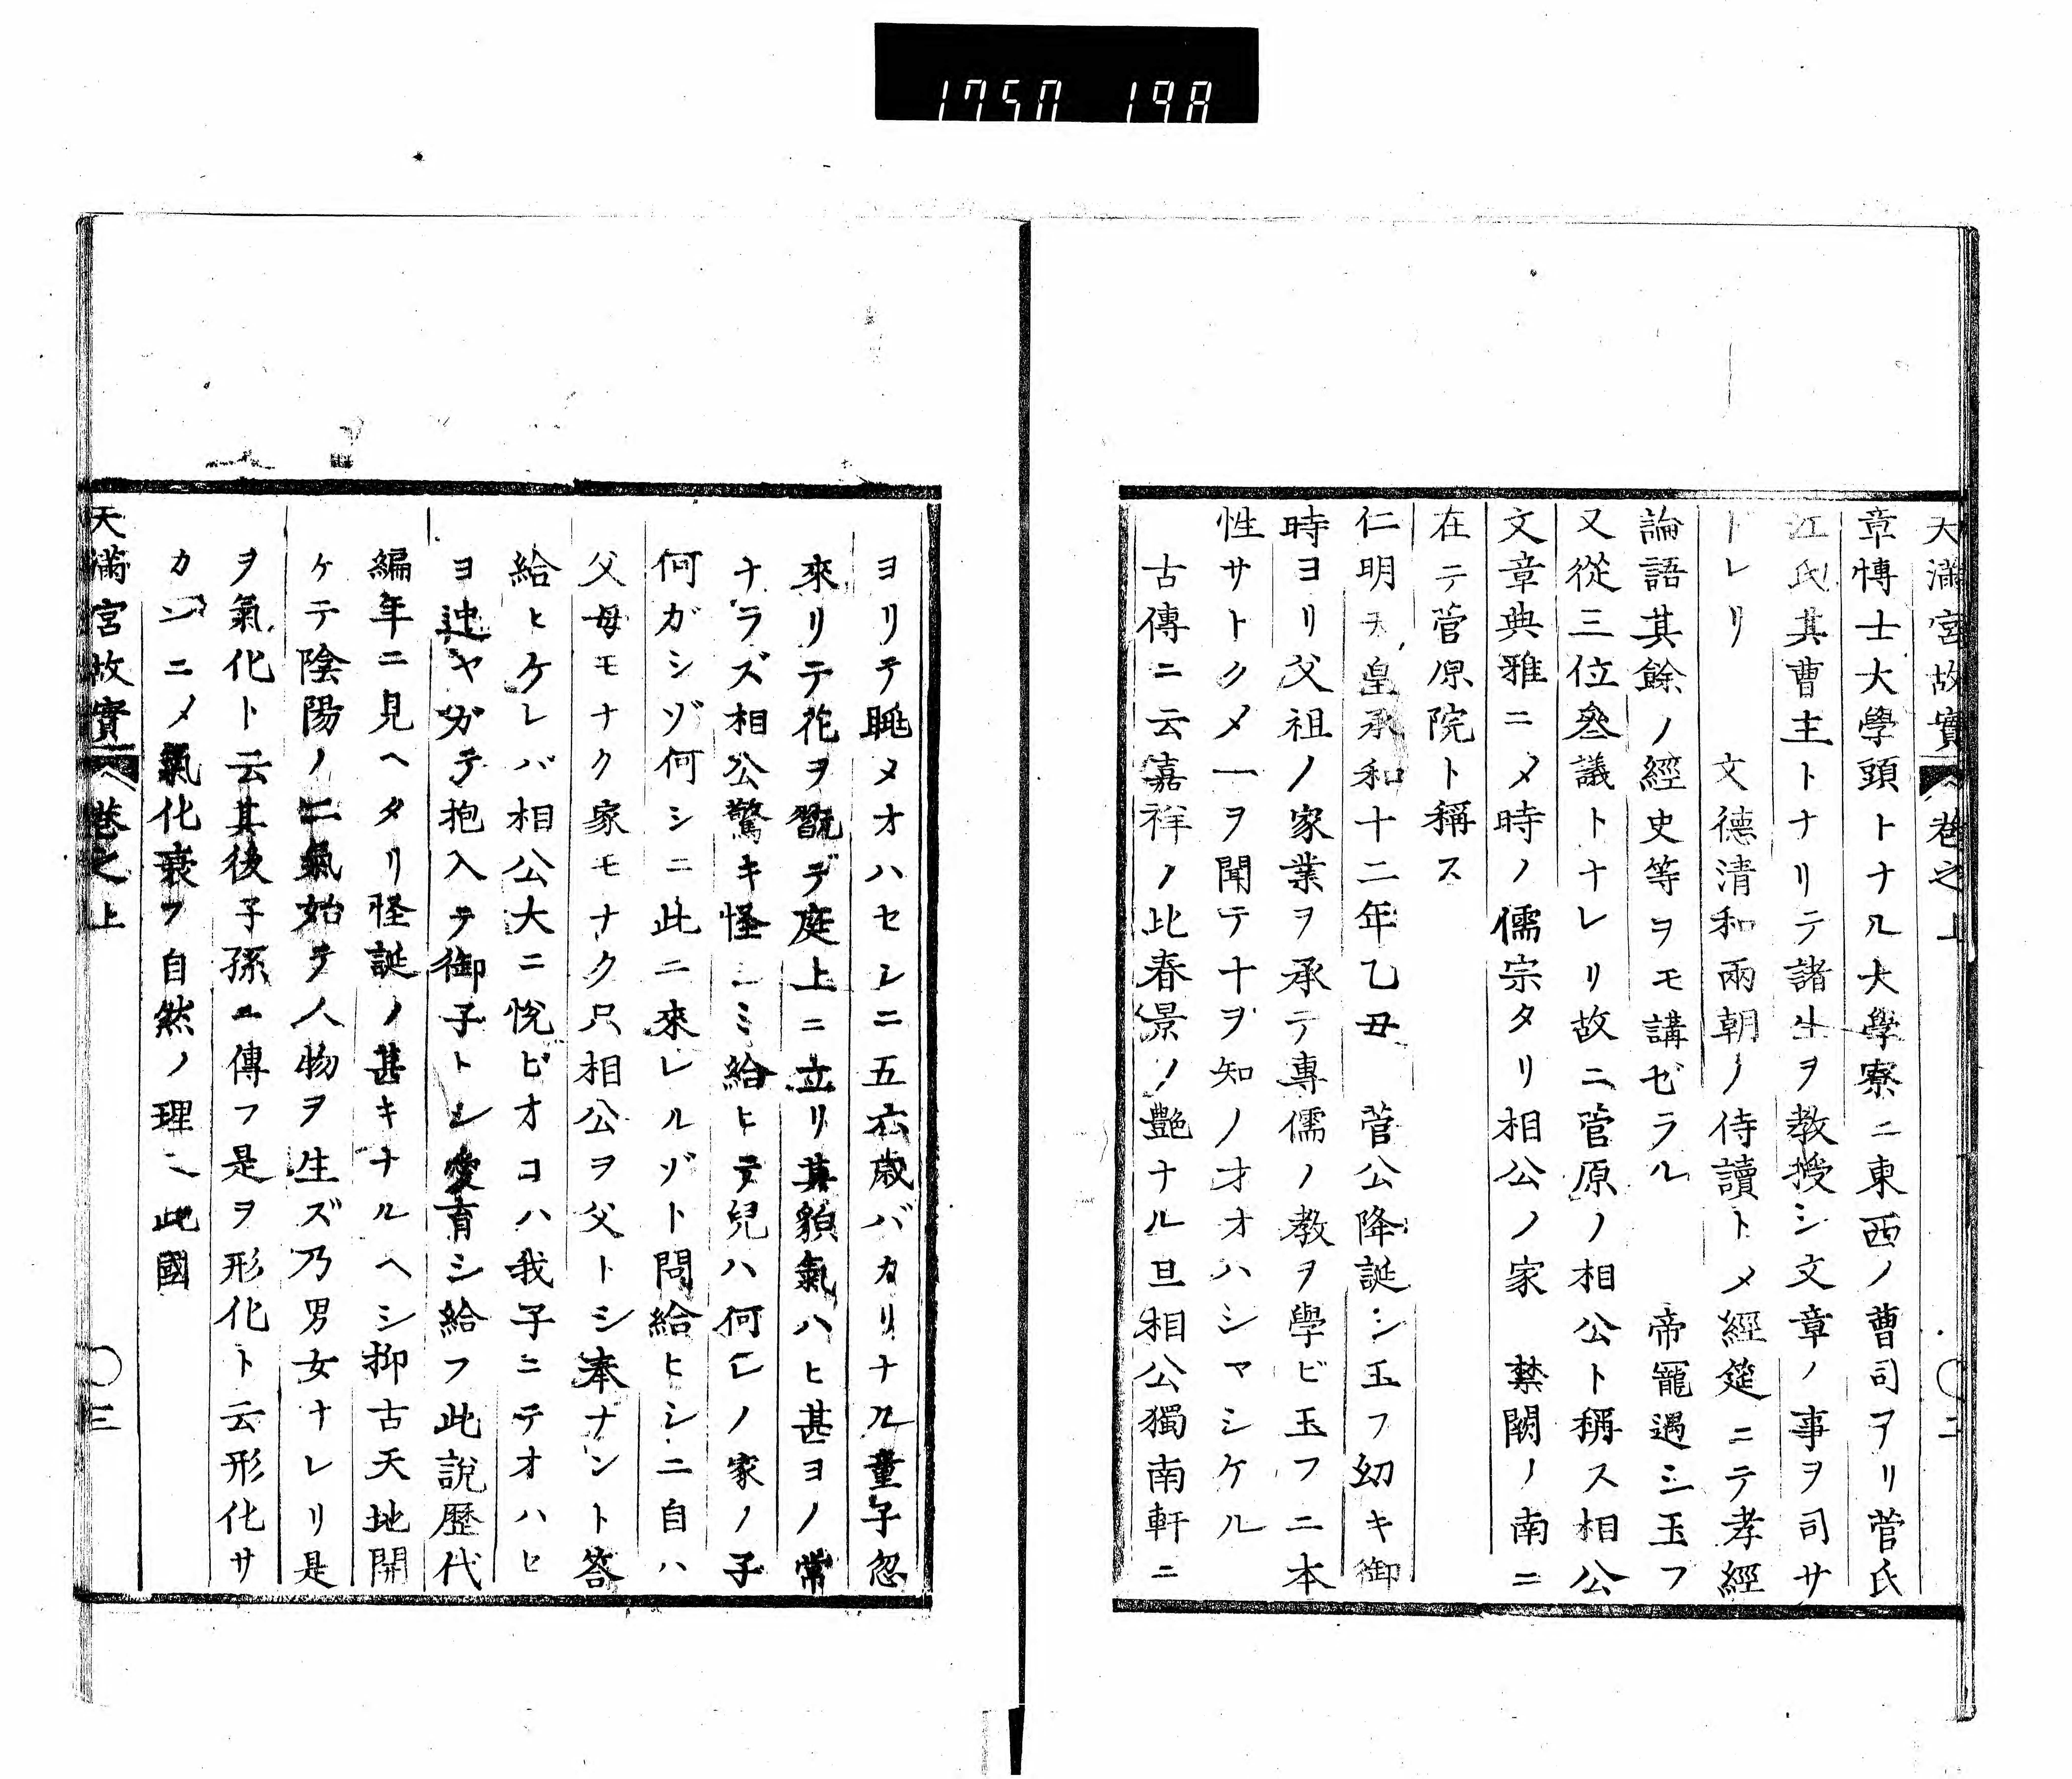 1750 198
天滿宮故實 卷之上 〇二
章博士大學頭トナル大學寮ニ東西ノ曹司アリ菅氏
江氏其曹主トナリテ諸生ヲ教授シ文章ノ事ヲ司サ
トレリ 文德清和兩朝ノ侍讀トメ經筵ニテ孝經
論語其餘ノ經史等ヲモ講ゼラル 帝寵遇シ玉フ
又從三位叅議トナレリ故ニ菅原ノ相公ト稱ス相公
文章典雅ニメ時ノ儒宗タリ相公ノ家 禁闕ノ南ニ
在テ菅原院ト稱ス
仁明天皇承和十二年乙丑 菅公降誕シ玉フ幼キ御
時ヨリ父祖ノ家業ヲ承テ專儒ノ教ヲ學ビ玉フニ本
性サトクメ一ヲ聞テ十ヲ知ノオオハシマシケル
古傳ニ云嘉祥ノ比春景ノ艶ナル旦相公獨南軒ニ
ヨリテ眺メオハセシニ五六歳バカリナル童子忽
來リテ花ヲ翫デ庭上ニ立リ其貌氣ハヒ甚ヨノ常
ナラズ相公驚キ怪シミ給ヒテ兒ハ何レノ家ノ子
何ガシゾ何シニ此ニ來レルゾト問給ヒシニ自ハ
父母モナク家モナク只相公ヲ父トシ奉ナント答
給ヒケレバ相公大ニ悅ビオコハ我子ニテオハセ
ヨ迚ヤガテ抱入テ御子トシ愛育シ給フ此說歷代
編年ニ見ヘタリ怪誕ノ甚キナルヘシ抑古天地開
ケテ陰陽ノ二氣始テ人物ヲ生ズ乃男女ナレリ是
ヲ氣化ト云其後子孫ニ傳フ是ヲ形化ト云形化サ
カンニメ氣化衰フ自然ノ理ヘ此國
天滿宮故實 卷之上 〇三